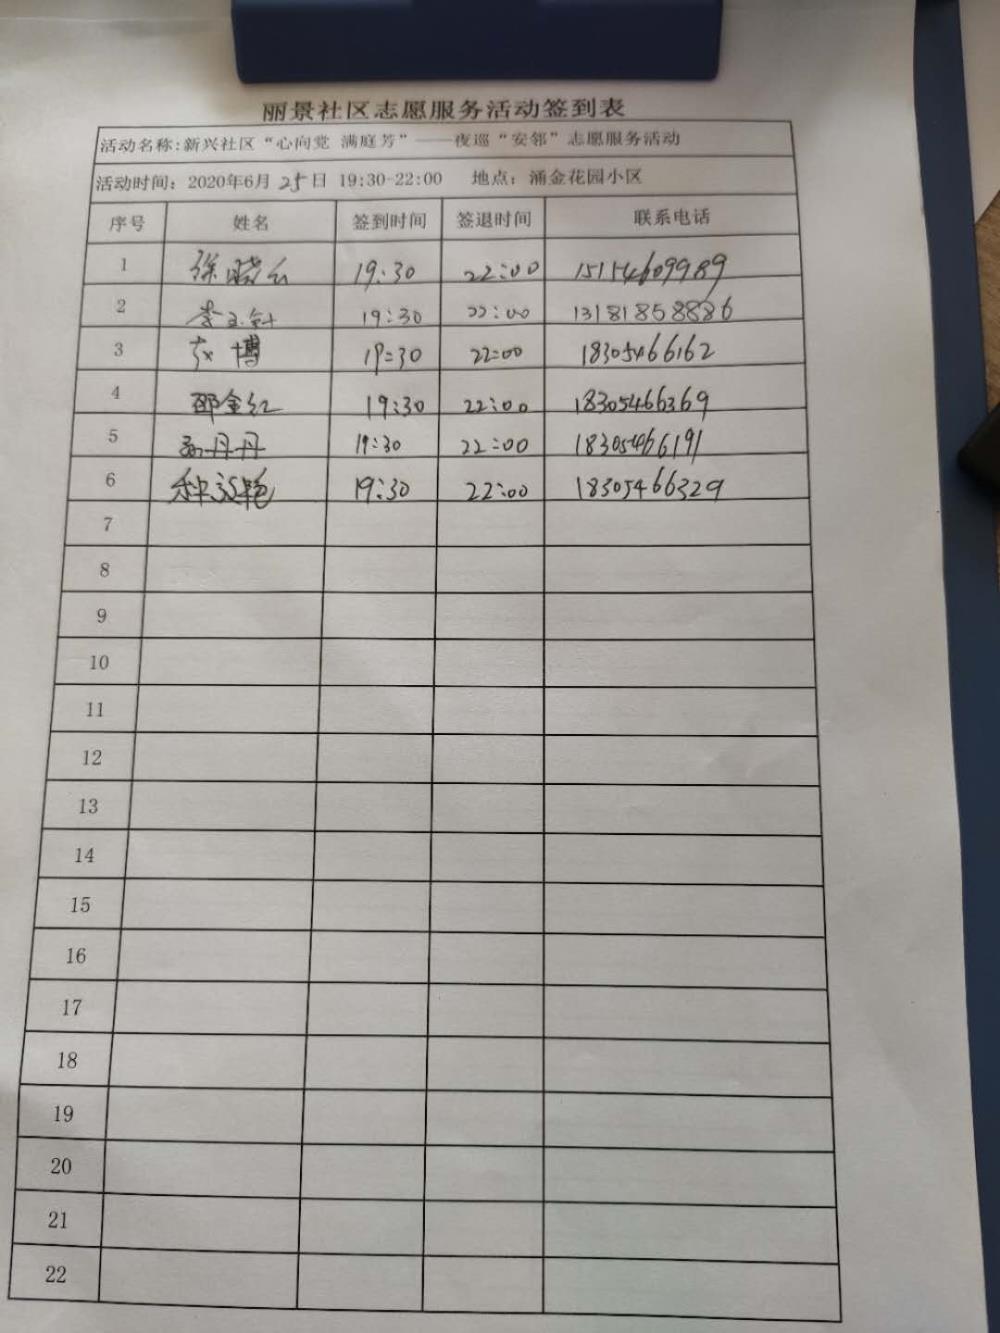 丽景社区志愿服务活动签到表
活动名称:新兴社区“心向党 满庭芳”——夜巡“安邻”志愿服务活动
活动时间：2020年6月25日 19:30-22:00 地点：涌金花园小区
序号 姓名 签到时间 签退时间 联系电话
1 徐晓红 19:30 22:00 15154609989
2 李玉 19:30 22:00 13181858886
3 博 19:30 22:00 18305466162
4 邵金红 19:30 22:00 18305466369
5 孙丹丹 19:30 22:00 18305466191
6 19:30 22:00 18305466329
7
8
9
10
11
12
13
14
15
16
17
18
19
20
21
22